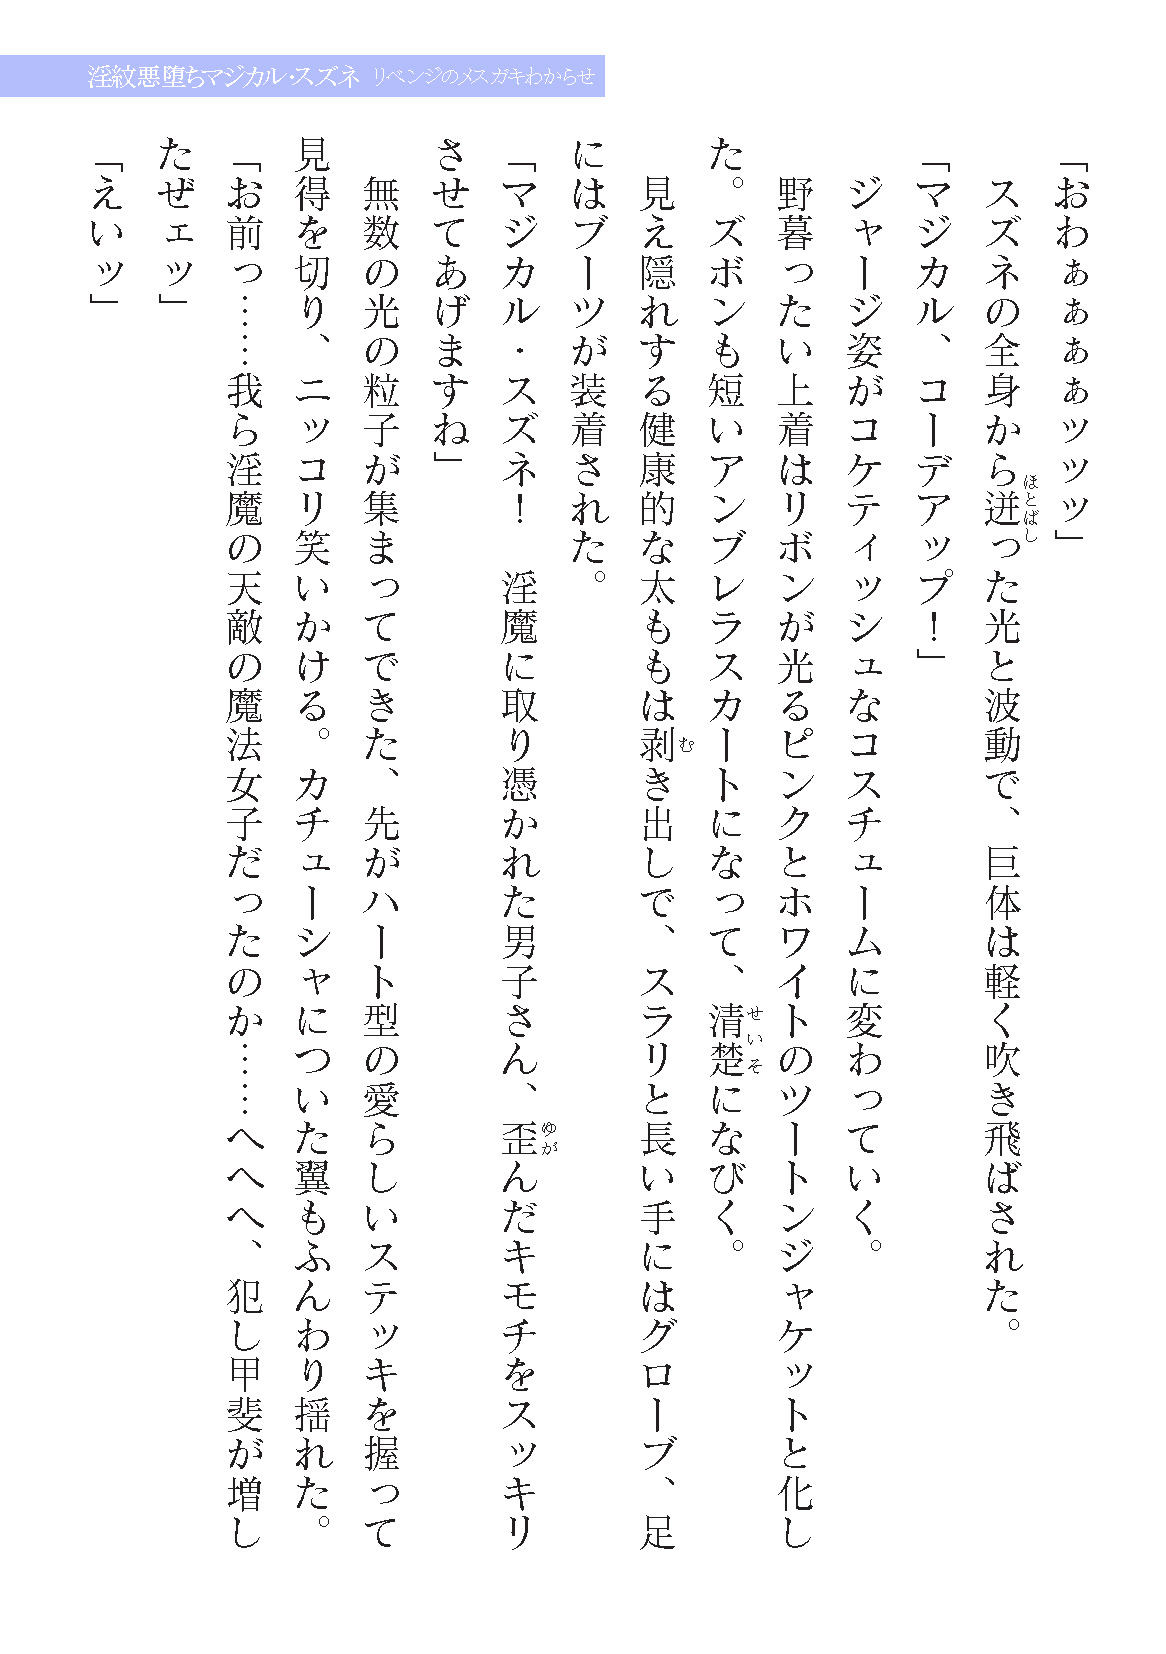 淫紋悪堕ちマジカル・スズネ リベンジのメスガキわからせ
「おわぁぁぁぁッッッ」
スズネの全身から迸った光と波動で、巨体は軽く吹き飛ばされた。
「マジカル、コーデアップ！」
ジャージ姿がコケティッシュなコスチュームに変わっていく。
野暮ったい上着はリボンが光るピンクとホワイトのツートンジャケットと化し
た。ズボンも短いアンブレラスカートになって、清楚になびく。
見え隠れする健康的な太ももは剥き出しで、スラリと長い手にはグローブ、足
にはブーツが装着された。
「マジカル・スズネ！　淫魔に取り憑かれた男子さん、歪んだキモチをスッキリ
させてあげますね」
無数の光の粒子が集まってできた、先がハート型の愛らしいステッキを握って
見得を切り、ニッコリ笑いかける。カチューシャについた翼もふんわり揺れた。
「お前っ……我ら淫魔の天敵の魔法女子だったのか……へへへ、犯し甲斐が増し
たぜェッ」
「えいッ」